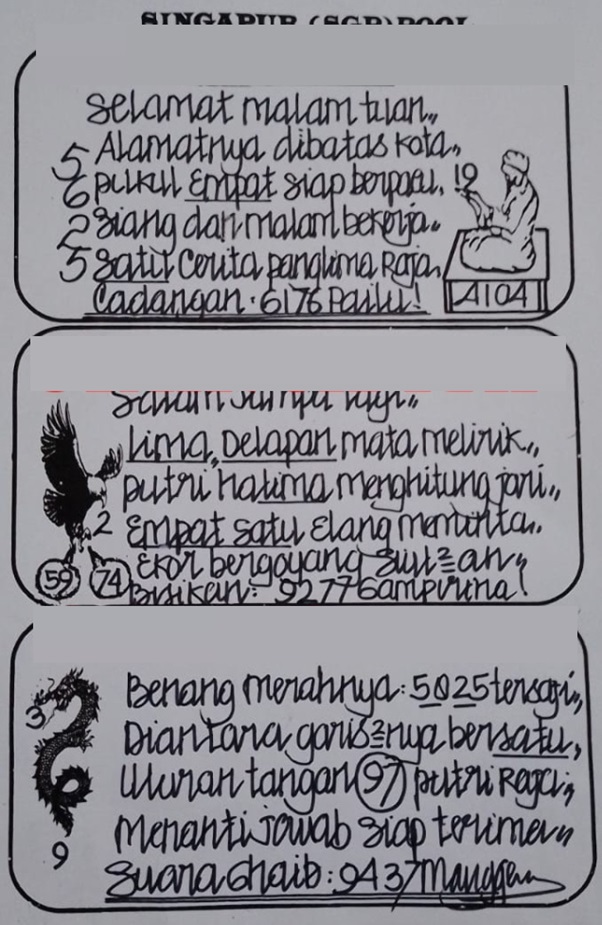 SINGAPUR (SGP) POOL
Selamat malam tuan,,
5 Alamatnya dibatas kota,,
6 pukul Empat siap berpacu, !9
2 Siang dan malam bekerja.
5 Satu Cerita panglima Raja,
Cadangan: 6176 Palu! A104
Salam Jumpa lagi,,
Lima, Delapan mata melirik,,
putri halima menghitung jari,,
2 Empat satu Elang meminta,
Ekor bergoyang Sul²an,,
59 74 Bisikan: 9277 Sampurna!
Benang merahnya: 5025 tersaji,,
3 Diantara garis²nya bersatu,
Uluran tangan 97 putri Raja,,
Menanti jawab siap terima,,
9 Suara Ghaib: 9437